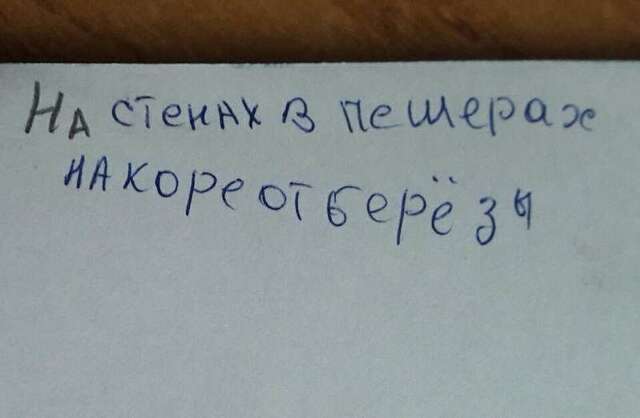 На стенах в пешерах
на коре от берёзы